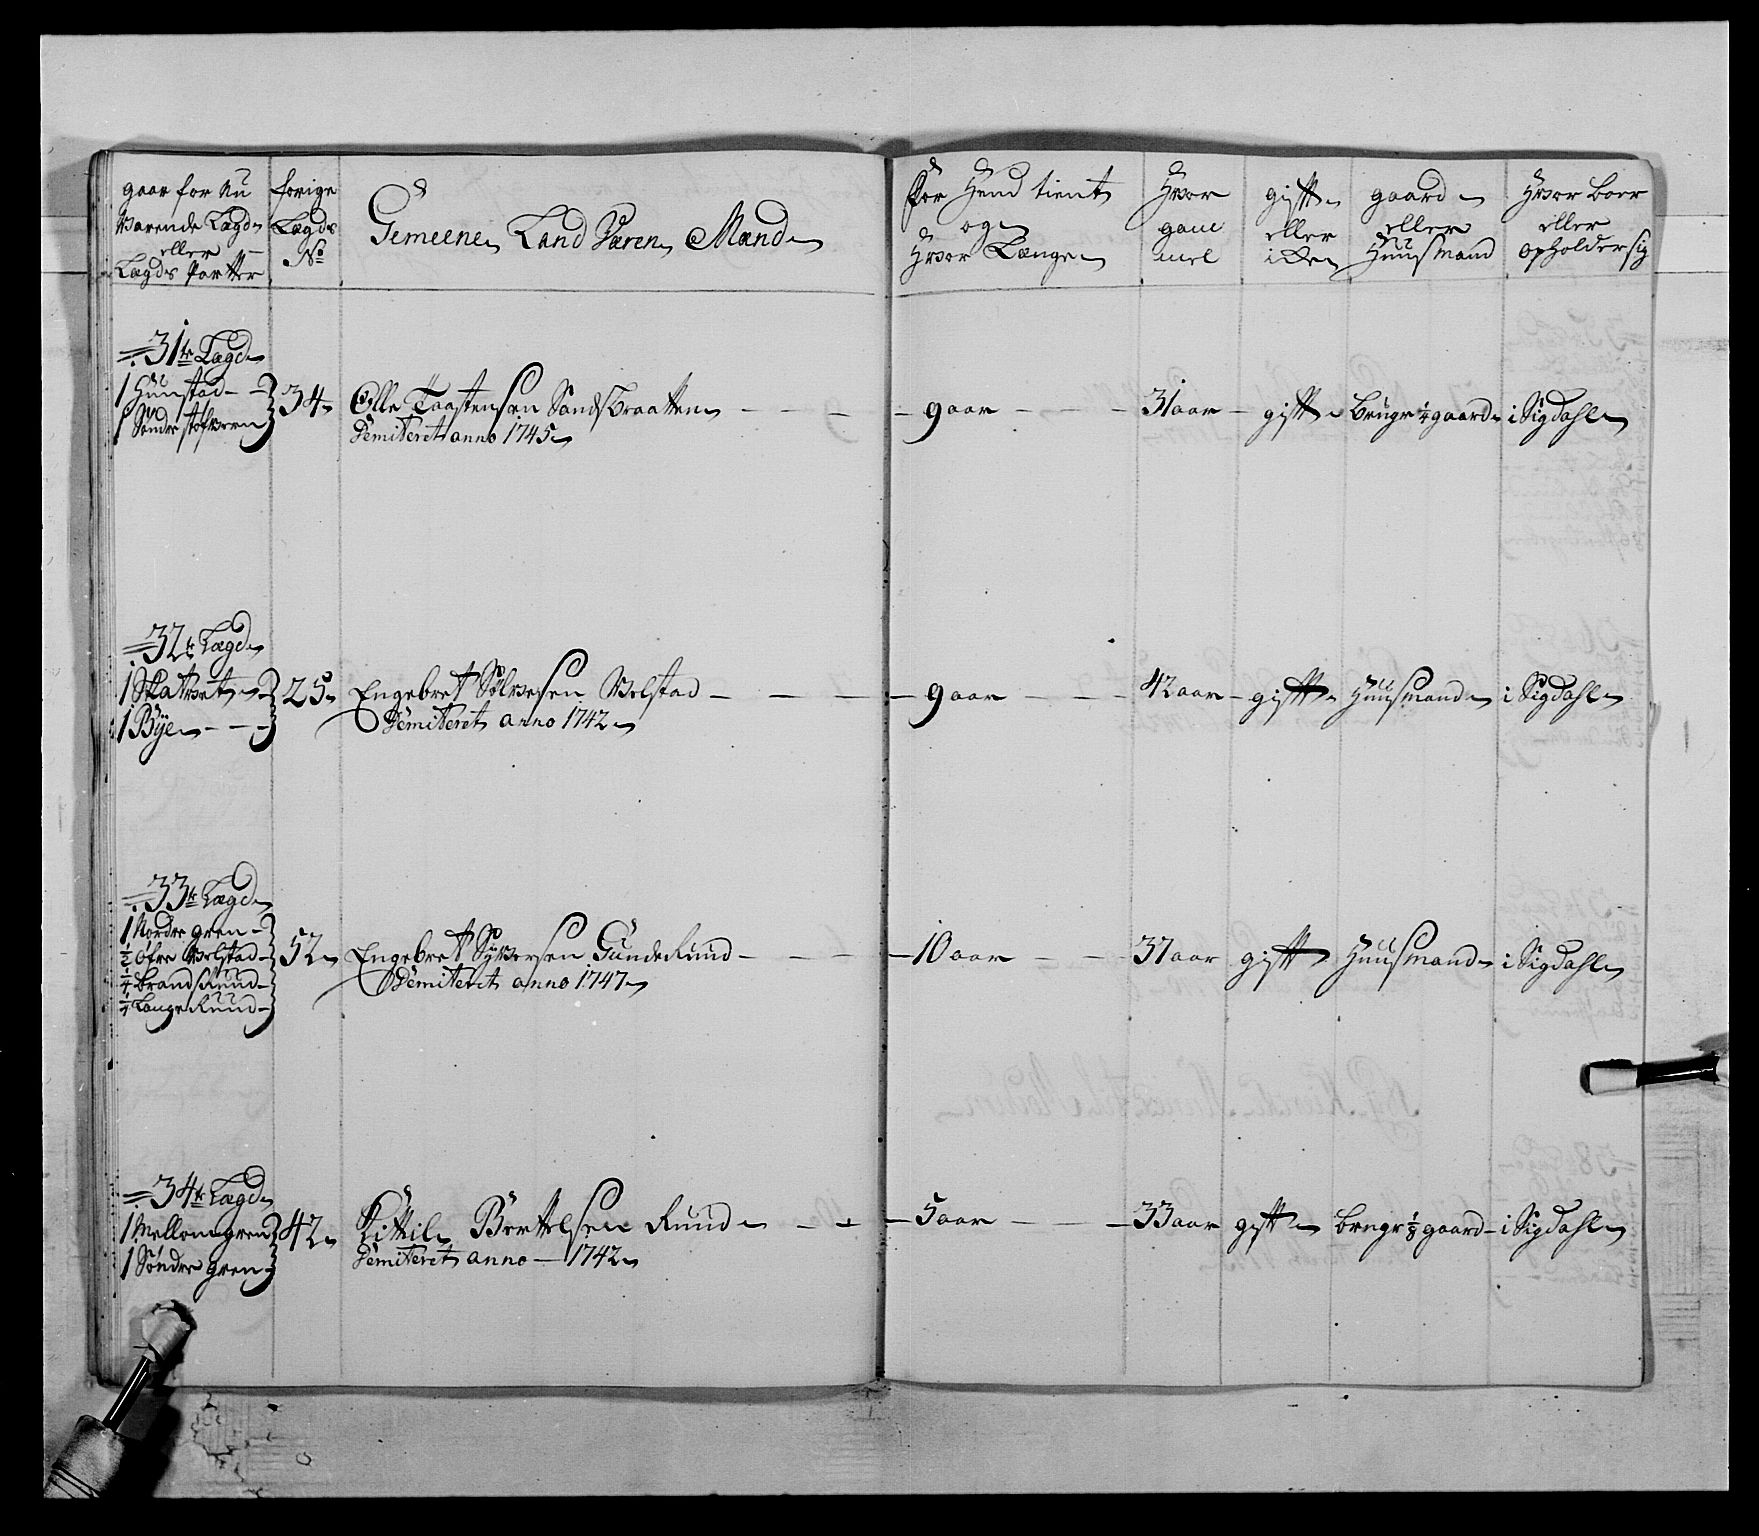 gaar for Nu
Værende Lægd
eller
Lægds Partter
forige
Lægds
No
Gemeene Land Væren Mænd
før Hend tient
og
Hvor Længe
Hvor
gam
mel
gift
eller
icke
gaard
eller
Huusmand
Hvor boer
eller
opholder sig
31te Lægd
1 Hunstad
1 Søndre
34 Olle Taastensen Sandsbraatten
Demiteret anno 1745
9 aar 31 aar gift bruger 1/4 gaard i Sigdahl
32te Lægd
1 Skatvet
1 Bye
25 Engebret Sølvesen Velstad
Demiteret anno 1742
9 aar 42 aar gift Huusmand i Sigdahl
33te Lægd
1 Nordre gren
1/2 Øfre Velstad
1/4 Brandsruud
1/4 Langeruud
52 Engebret Syversen Gunderuud
Demiteret anno 1747
10 aar 37 aar gift Huusmand i Sigdahl
34te Lægd
1 Mellom gren
1 Søndre gren
42 Kittil Bertelsen Ruud
Demiteret anno 1742
5 aar 33 aar gift bruger 1/8 gaard i Sigdahl